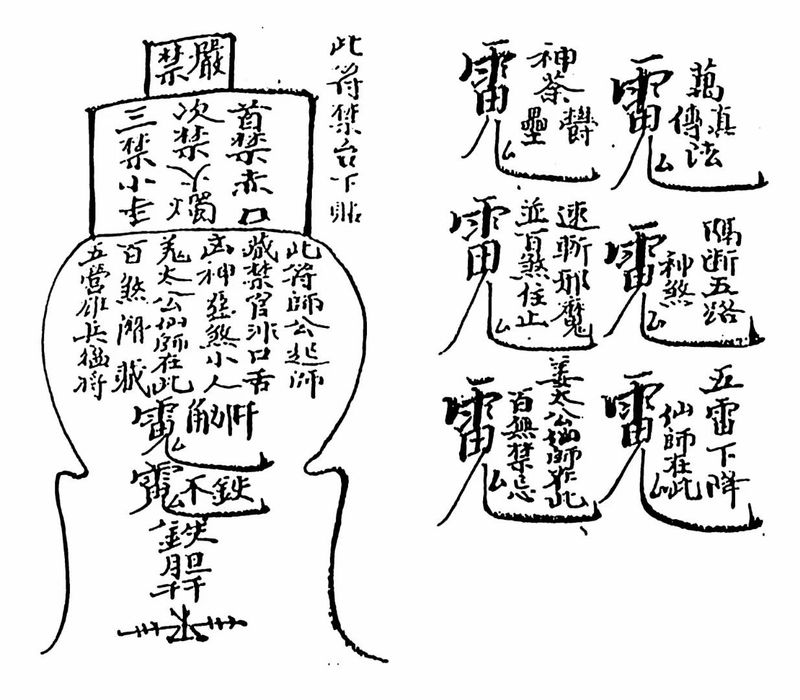 此符禁台下貼
嚴禁
首禁赤口
次禁火燭
三禁小
此符師公起師
藏禁官非口舌
凶神惡煞小人
姜太公仙師在此
百煞潛藏
五營雄兵猛將
真
傳法
神荼
鬱壘
隔断五路
神煞
速斬邪魔
並百煞住止
五雷下降
仙師在此
姜太公仙師在此
百無禁忌